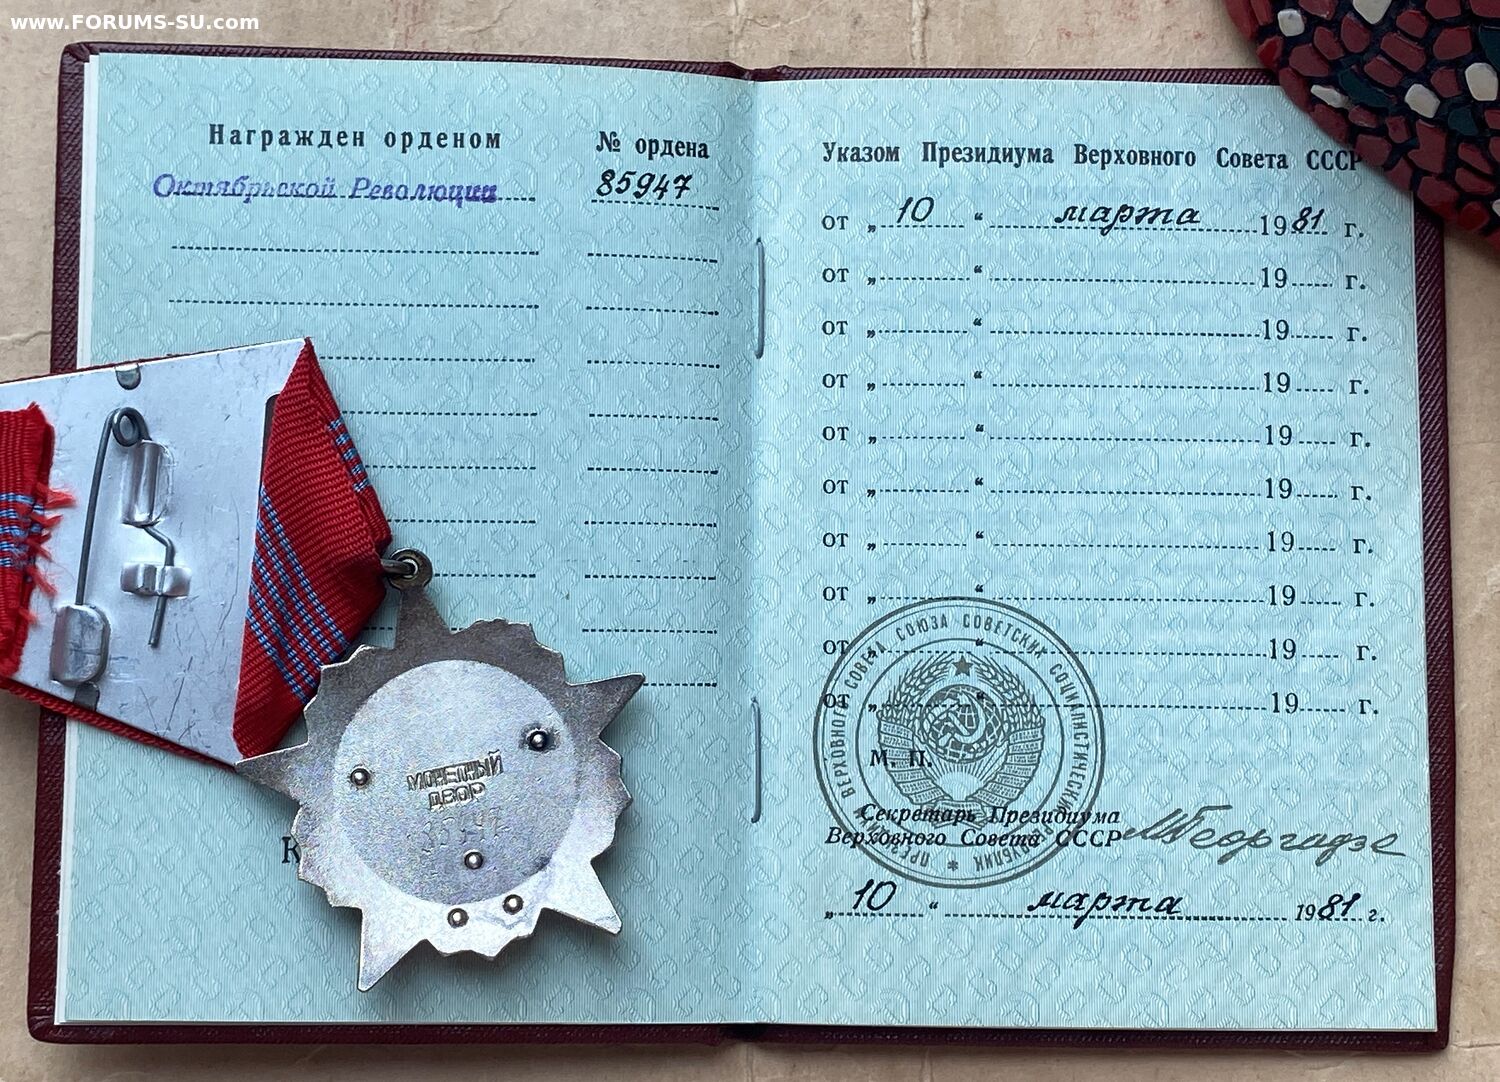 www.FORUMS-SU.com
Награжден орденом
№ ордена
Октябрьской Революции
85947
Указом Президиума Верховного Совета СССР
от „ 10 “ марта 1981 г.
от „ “ 19 г.
от „ “ 19 г.
от „ “ 19 г.
от „ “ 19 г.
от „ “ 19 г.
от „ “ 19 г.
от „ “ 19 г.
от „ “ 19 г.
от „ “ 19 г.
М. П.
Секретарь Президиума
Верховного Совета СССР
МГеоргадзе
„ 10 “ марта 1981 г.
ВЕРХОВНОГО СОВЕТА СОЮЗА СОВЕТСКИХ СОЦИАЛИСТИЧЕСКИХ
МОНЕТНЫЙ
ДВОР
К